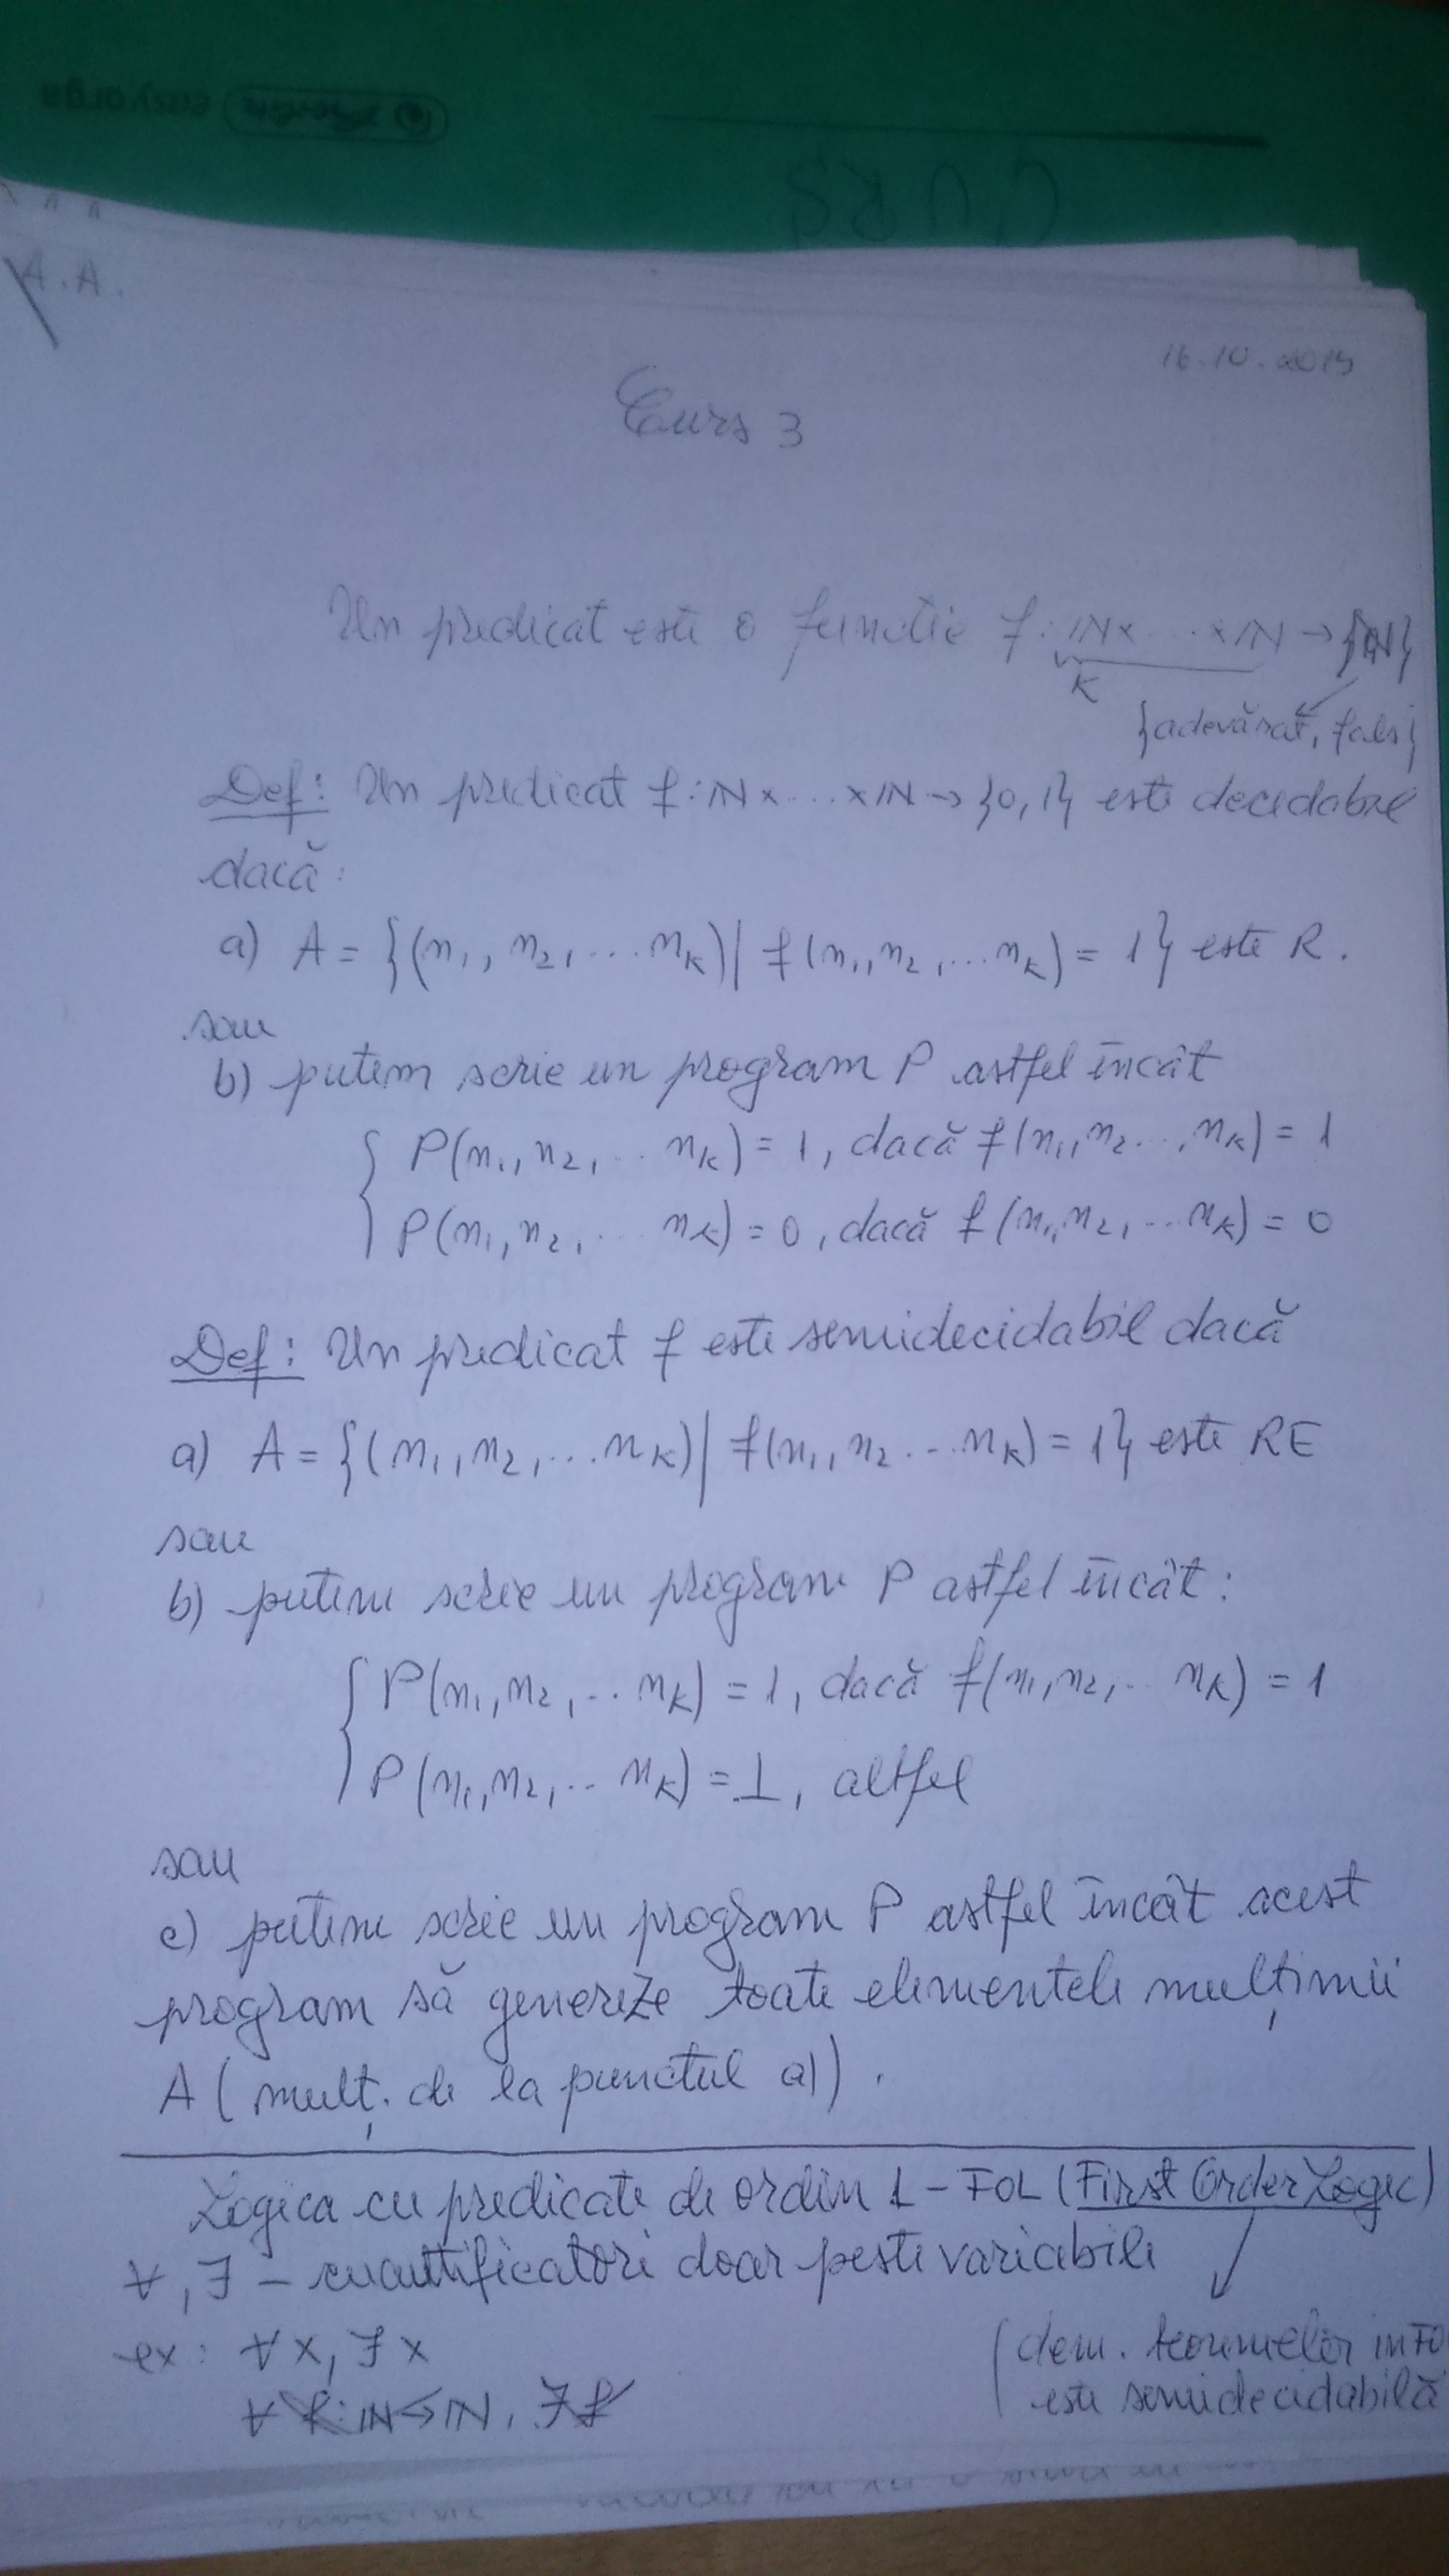 easyorga
CURS
A.A.
16.10.2013
Curs 3
Un predicat este o functie f: ℕ× ... ×ℕ → {0,1}
K
{adevărat, fals}
Def: Un predicat f: ℕ× ... ×ℕ → {0,1} este decidabil
dacă:
a) A = {(n₁, n₂, ... nₖ) | f(n₁, n₂, ... nₖ) = 1} este R.
sau
b) putem scrie un program P astfel încât
{ P(n₁, n₂, ... nₖ) = 1, dacă f(n₁, n₂ ..., nₖ) = 1
P(n₁, n₂, ... nₖ) = 0, dacă f(n₁, n₂, ... nₖ) = 0
Def: Un predicat f este semidecidabil dacă
a) A = {(n₁, n₂, ... nₖ) | f(n₁, n₂ ... nₖ) = 1} este RE
sau
b) putem scrie un program P astfel încât:
{ P(n₁, n₂, .. nₖ) = 1, dacă f(n₁, n₂, .. nₖ) = 1
P(n₁, n₂, .. nₖ) = ⊥, altfel
sau
c) putem scrie un program P astfel încât acest
program să genereze toate elementele mulțimii
A (mulț. de la punctul a)).
Logica cu predicate de ordin 1 - FOL (First Order Logic)
∀, ∃ - cuantificatori doar peste variabile
ex: ∀x, ∃x
∀ f: ℕ→ℕ, ∃f
(dem. teoremelor in FO
este semidecidabilă